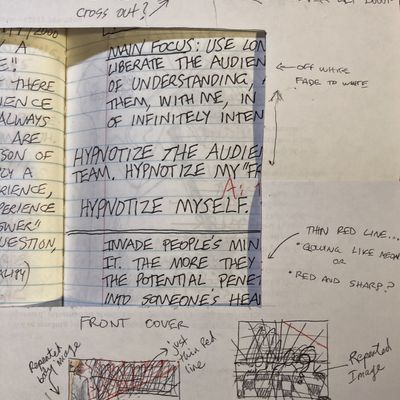 CROSS OUT?
2000
A
E!"
THERE
IENCE
ALWAYS
ARE
SON OF
LY A
RIENCE,
PERIENCE
OWER"
UESTION,
ALITY)
MAIN FOCUS: USE LON
LIBERATE THE AUDIEN
OF UNDERSTANDING,
THEM, WITH ME, IN
OF INFINITELY INTEN
HYPNOTIZE THE AUDIE
TEAM, HYPNOTIZE MY "FA
HYPNOTIZE MYSELF.
INVADE PEOPLE'S MIN
IT. THE MORE THEY
THE POTENTIAL PENET
INTO SOMEONE'S HEA
OFF WHITE
FADE TO WHITE
THIN RED LINE...
• GLOWING LIKE NEON
OR
• RED AND SHARP?
FRONT COVER
Repeated
boy image
just
thin Red
line
Repeated
Image